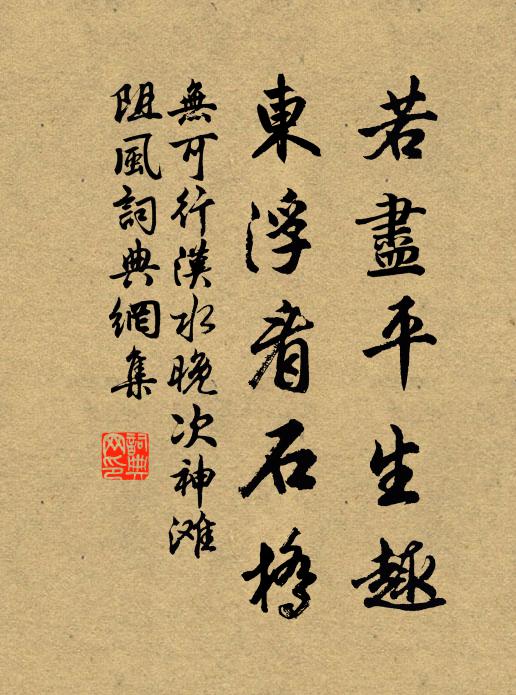 若盡平生趣
東浮看石橋
無可行漢水晚次神滩
阻風詞典網集
詞典網印